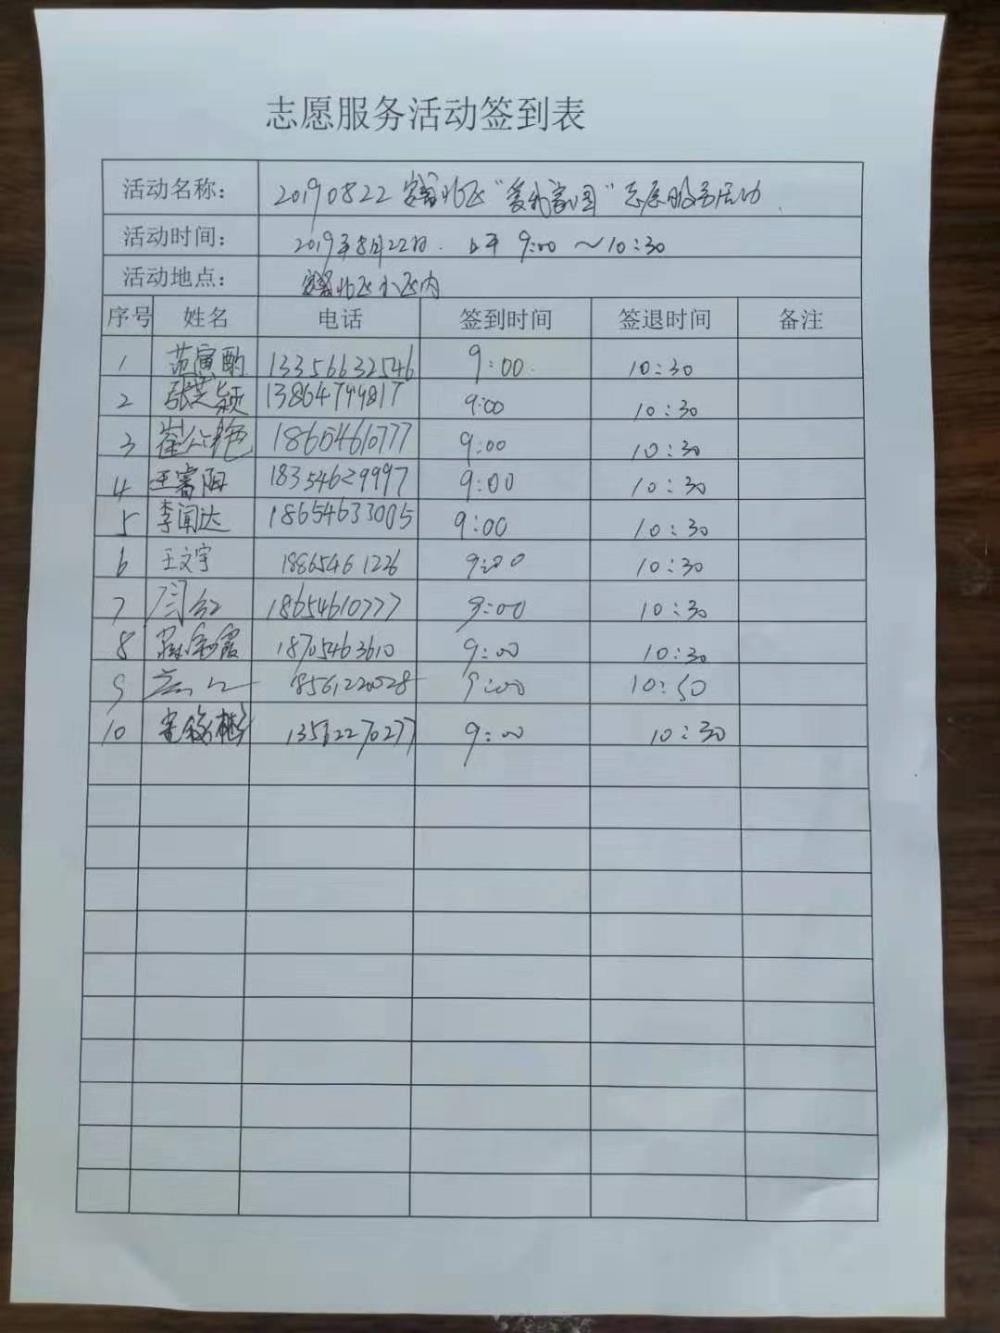 志愿服务活动签到表
活动名称： 20190822 安馨北区“爱我家园”志愿服务活动
活动时间： 2019年8月22日. 上午 9:00 ～10:30
活动地点： 安馨北区小区内
序号 姓名 电话 签到时间 签退时间 备注
1 范寅酌 13356632546 9:00 10:30
2 张芝颖 13864794817 9:00 10:30
3 崔 艳 18654610777 9:00 10:30
4 王富阳 18354629997 9:00 10:30
5 李闻达 18654633005 9:00 10:30
6 王文宇 18865461226 9:00 10:30
7 闫红 18654610777 9:00 10:30
8 霞 18705463610 9:00 10:30
9 18561220028 9:00 10:50
10 9:00 10:30